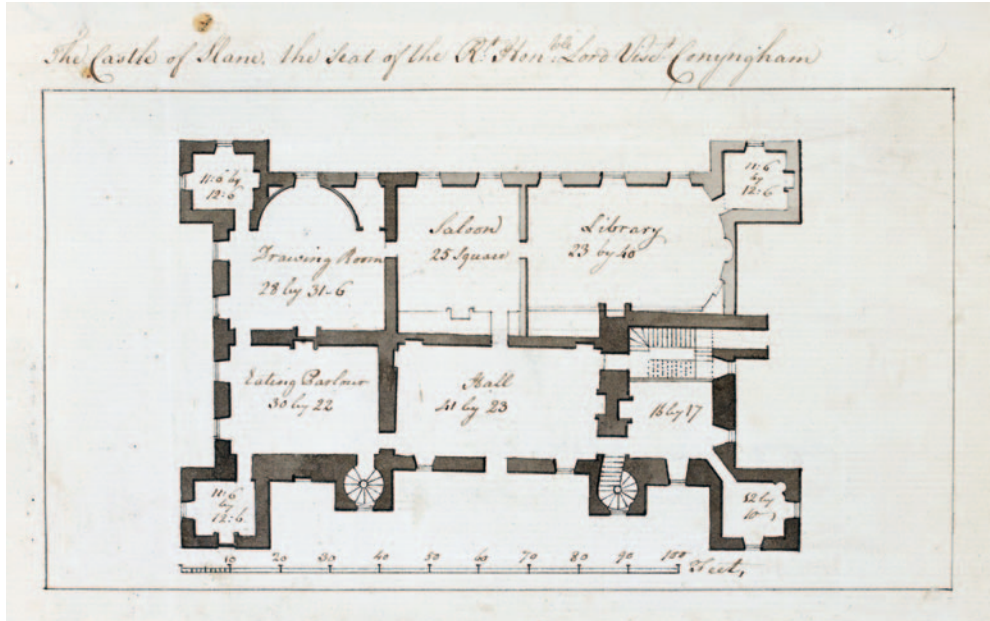 The Castle of Slane. the Seat of the Rt. Honble. Lord Visct. Conyngham
11:6 by
12:6
11:6
by
12:6
Saloon
25 Square
Library
23 by 40
Drawing Room
28 by 31-6
Eating Parlour
30 by 22
Hall
41 by 23
16 by 17
11:6
by
12:6
12 by
10
10 20 30 40 50 60 70 80 90 100 Feet,